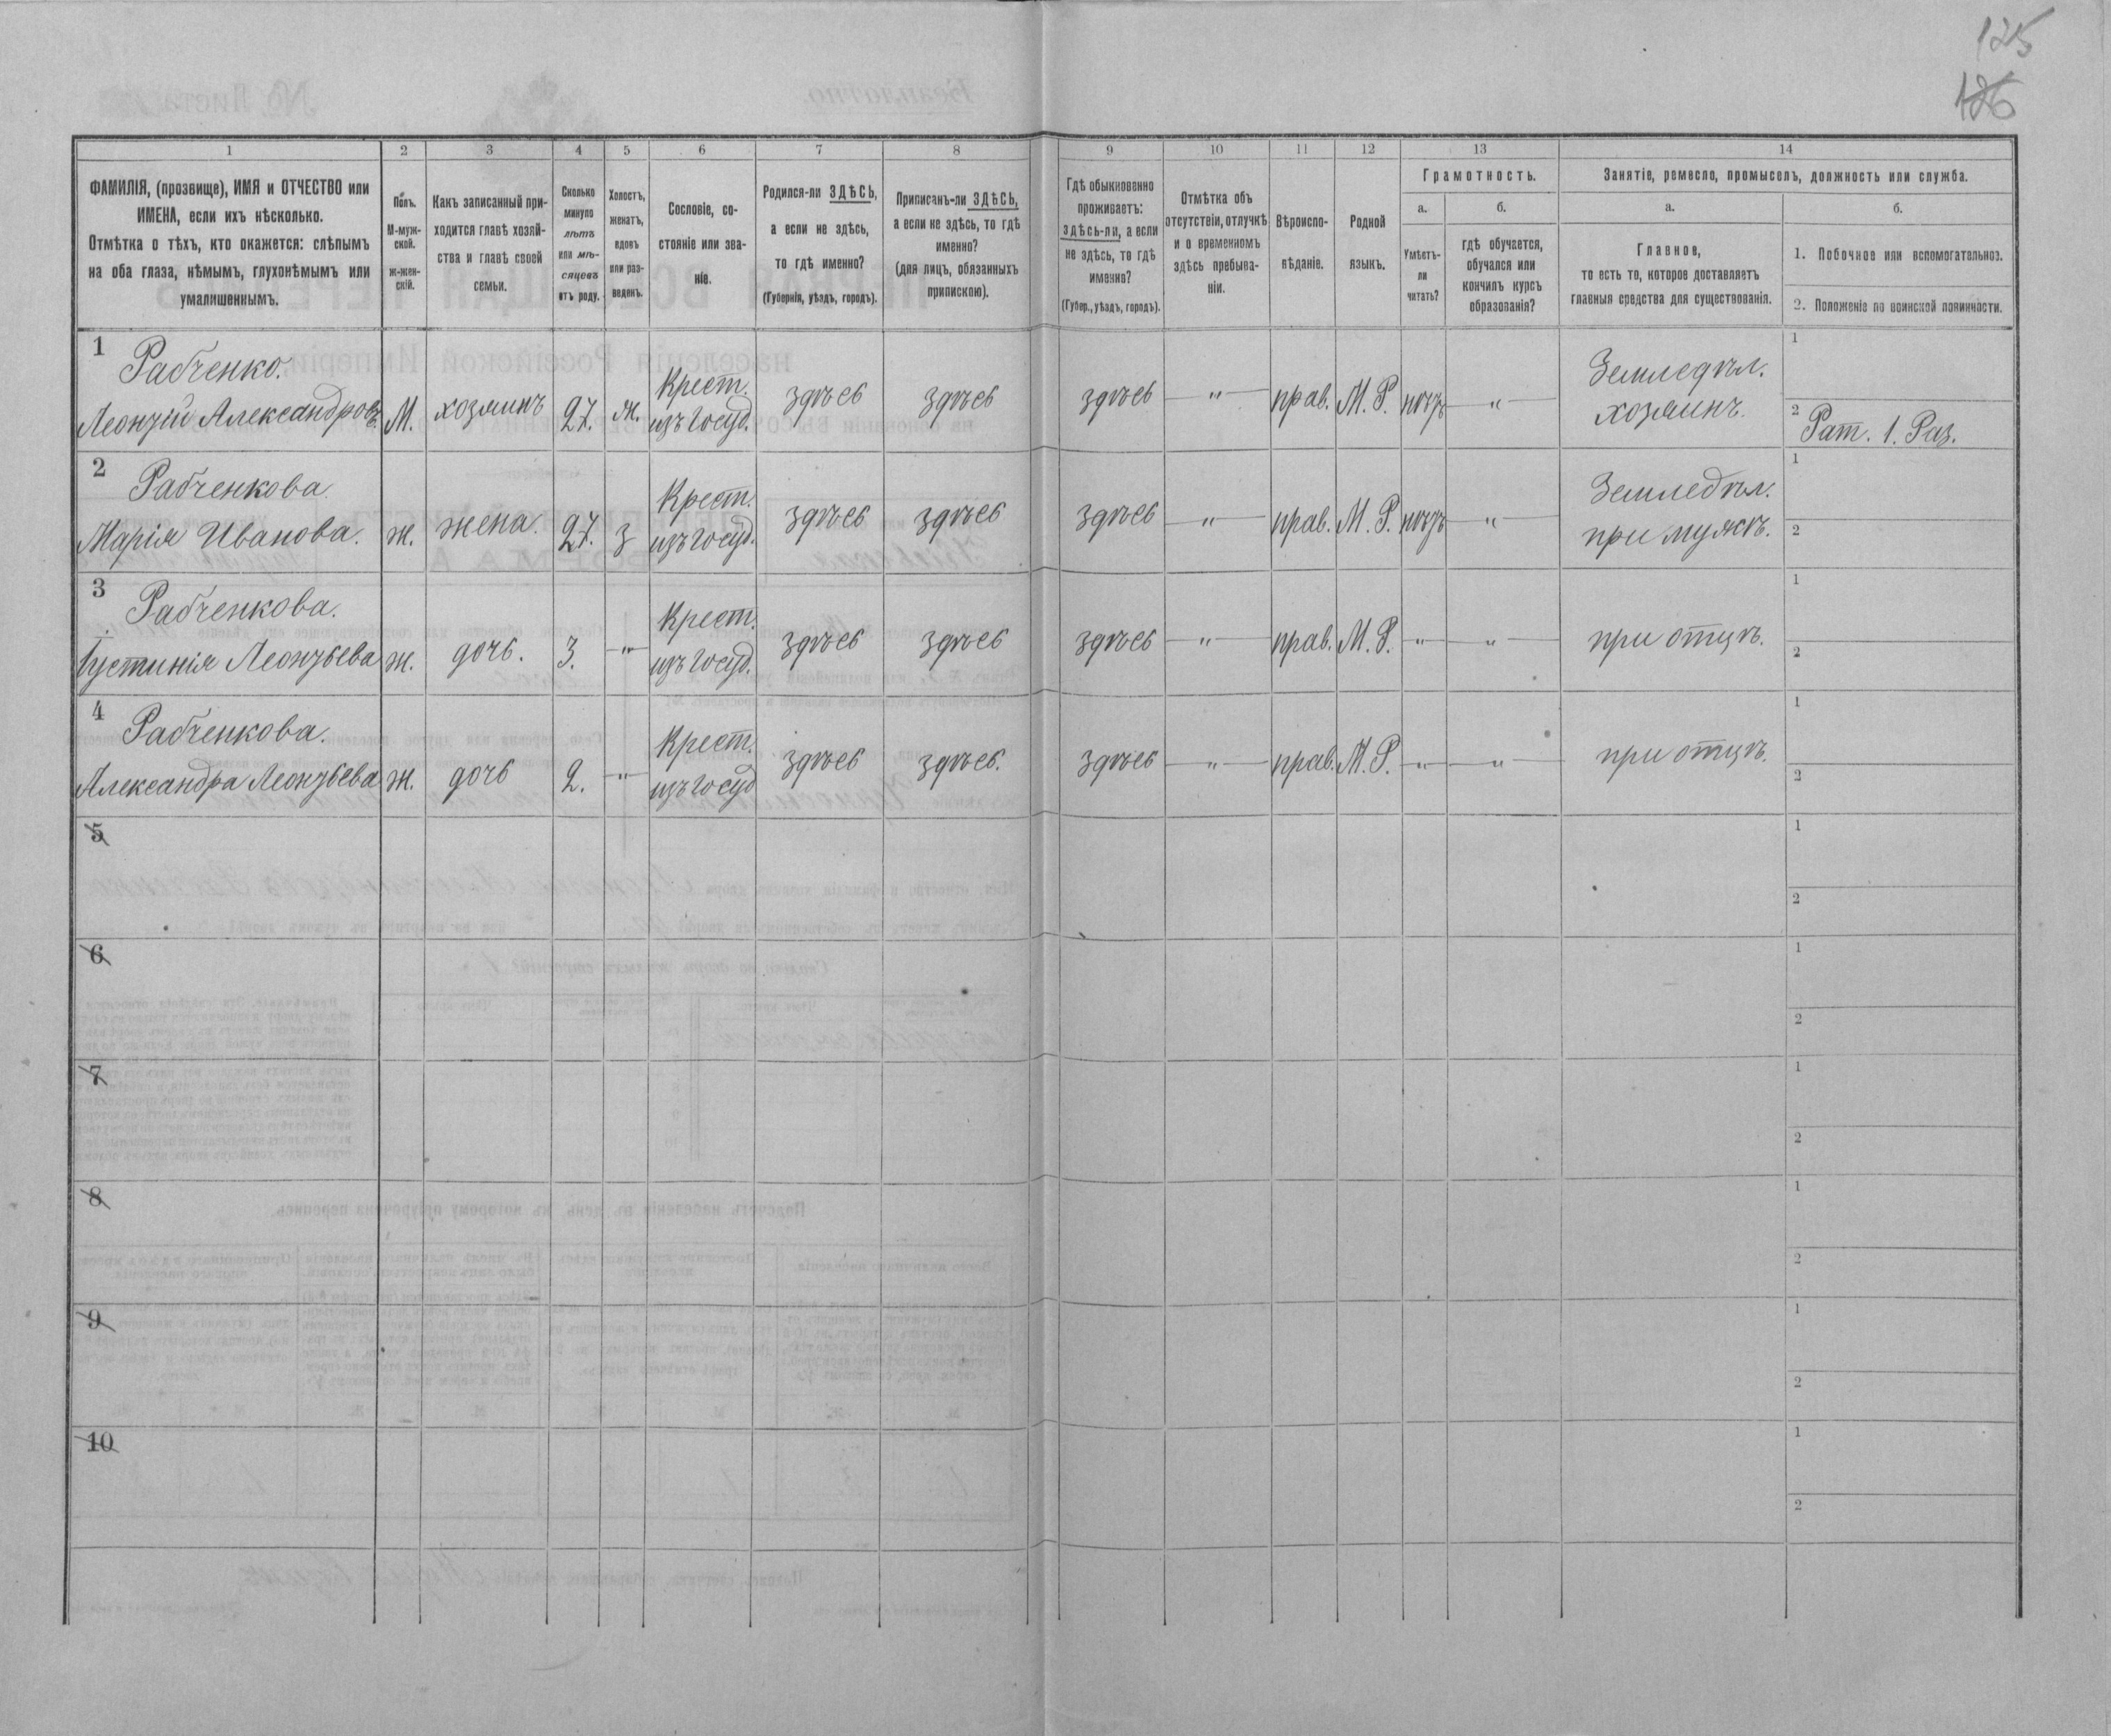 125
126
1
2
3
4
5
6
7
8
9
10
11
12
13
14
ФАМИЛІЯ, (прозвище), ИМЯ и ОТЧЕСТВО или
ИМЕНА, если ихъ нѣсколько.
Отмѣтка о тѣхъ, кто окажется: слѣпымъ
на оба глаза, нѣмымъ, глухонѣмымъ или
умалишеннымъ.
Полъ.
М-муж-
ской.
ж-жен-
скій.
Какъ записанный при-
ходится главѣ хозяй-
ства и главѣ своей
семьи.
Сколько
минуло
лѣтъ
или мѣ-
сяцевъ
отъ роду.
Холостъ,
женатъ,
вдовъ
или раз-
веденъ.
Сословіе, со-
стояніе или зва-
ніе.
Родился-ли ЗДѢСЬ,
а если не здѣсь,
то гдѣ именно?
(Губернія, уѣздъ, городъ).
Приписанъ-ли ЗДѢСЬ,
а если не здѣсь, то гдѣ
именно?
(для лицъ, обязанныхъ
припискою).
Гдѣ обыкновенно
проживаетъ:
здѣсь-ли, а если
не здѣсь, то гдѣ
именно?
(Губер., уѣздъ, городъ).
Отмѣтка объ
отсутствіи, отлучкѣ
и о временномъ
здѣсь пребыва-
ніи.
Вѣроиспо-
вѣданіе.
Родной
языкъ.
Грамотность.
а.
Умѣетъ-
ли
читать?
б.
гдѣ обучается,
обучался или
кончилъ курсъ
образованія?
Занятіе, ремесло, промыселъ, должность или служба.
а.
Главное,
то есть то, которое доставляетъ
главныя средства для существованія.
б.
1. Побочное или вспомогательное.
2. Положеніе по воинской повинности.
1
Рабченко.
Леонтій Александровъ
М.
хозяинъ
27.
ж.
Крест.
изъ госуд.
здѣсь
здѣсь
здѣсь
"
прав.
М. Р.
нѣтъ
"
Земледѣл.
хозяинъ.
1
2
Рат. 1. Раз.
2
Рабченкова.
Марія Иванова.
ж.
жена.
27.
з
Крест.
изъ госуд.
здѣсь
здѣсь
здѣсь
"
прав.
М. Р.
нѣтъ
"
Земледѣл.
при мужѣ.
1
2
3
Рабченкова.
Іустинія Леонтьева
ж.
дочь.
3.
"
Крест.
изъ госуд.
здѣсь
здѣсь
здѣсь
"
прав.
М. Р.
"
"
при отцѣ.
1
2
4
Рабченкова.
Александра Леонтьева
ж.
дочь
2.
"
Крест.
изъ госуд
здѣсь
здѣсь.
здѣсь
"
прав.
М. Р.
"
"
при отцѣ.
1
2
5
1
2
6
1
2
7
1
2
8
1
2
9
1
2
10
1
2